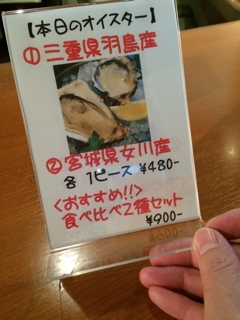 【本日のオイスター】
①三重県羽島産
②宮城県女川産
各 1ピース ¥480-
<おすすめ!!>
食べ比べ2種セット
¥900-